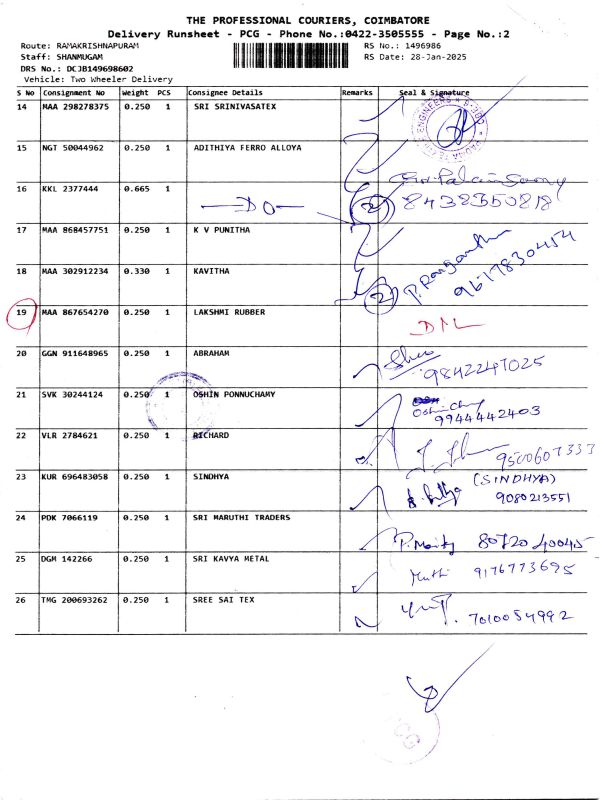 THE PROFESSIONAL COURIERS, COIMBATORE
Delivery Runsheet - PCG - Phone No.:0422-3505555 - Page No.:2
Route: RAMAKRISHNAPURAM RS No.: 1496986
Staff: SHANMUGAM RS Date: 28-Jan-2025
DRS No.: DCJB149698602
Vehicle: Two Wheeler Delivery
S No Consignment No Weight PCS Consignee Details Remarks Seal & Signature
14 MAA 298278375 0.250 1 SRI SRINIVASATEX
ENGINEERS
15 NGT 50044962 0.250 1 ADITHIYA FERRO ALLOYA
16 KKL 2377444 0.665 1
DO 2 8438350818
17 MAA 868457751 0.250 1 K V PUNITHA
18 MAA 302912234 0.330 1 KAVITHA
2 P. Ranganathan 9617830454
19 MAA 867654270 0.250 1 LAKSHMI RUBBER
DML
20 GGN 911648965 0.250 1 ABRAHAM
9842247025
21 SVK 30244124 0.250 1 OSHIN PONNUCHAMY
9944442403
22 VLR 2784621 0.250 1 RICHARD
9500607333
23 KUR 696483058 0.250 1 SINDHYA (SINDHYA)
9080213551
24 PDK 7066119 0.250 1 SRI MARUTHI TRADERS
80720 40045
25 DGM 142266 0.250 1 SRI KAVYA METAL
Muthi 9176773695
26 TMG 200693262 0.250 1 SREE SAI TEX
7010054992